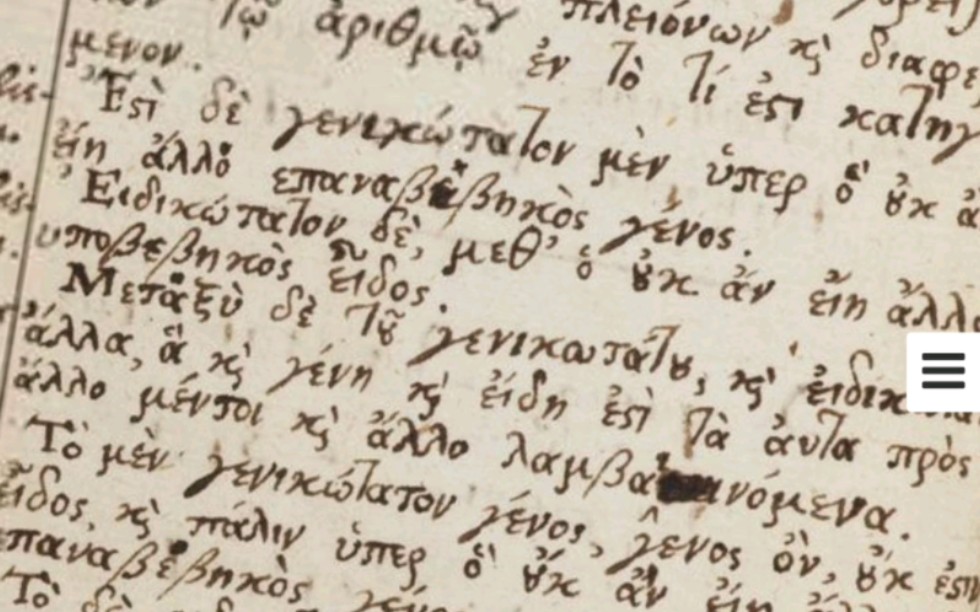 τῷ ἀριθμῷ πλειόνων κὶ διαφε
μενον. ἐν τὸ τί ἐστι κατηγ
Ἔστι δὲ γενικώτατον μὲν ὑπερ ὃ οὐκ ἂ
εἴη ἄλλο ἐπαναβεβηκὸς γένος.
Εἰδικώτατον δὲ, μεθ' ὃ οὐκ ἂν εἴη ἄλλο
υποβεβηκὸς εἶδος.
Μεταξὺ δὲ τοῦ γενικωτάτου, κὶ εἰδικ
ἄλλα, ἃ κὶ γένη κὶ εἴδη ἐστὶ τὰ ἀυτὰ πρὸς
ἄλλο μέντοι κὶ ἄλλο λαμβανόμενα.
Τὸ μὲν γενικώτατον γένος, γένος ὂν, οὐκ ἐστι
εἶδος, κὶ πάλιν ὑπερ ὃ οὐκ ἂν εἴη
επαναβεβηκὸς γέν
Τὸ δὲ